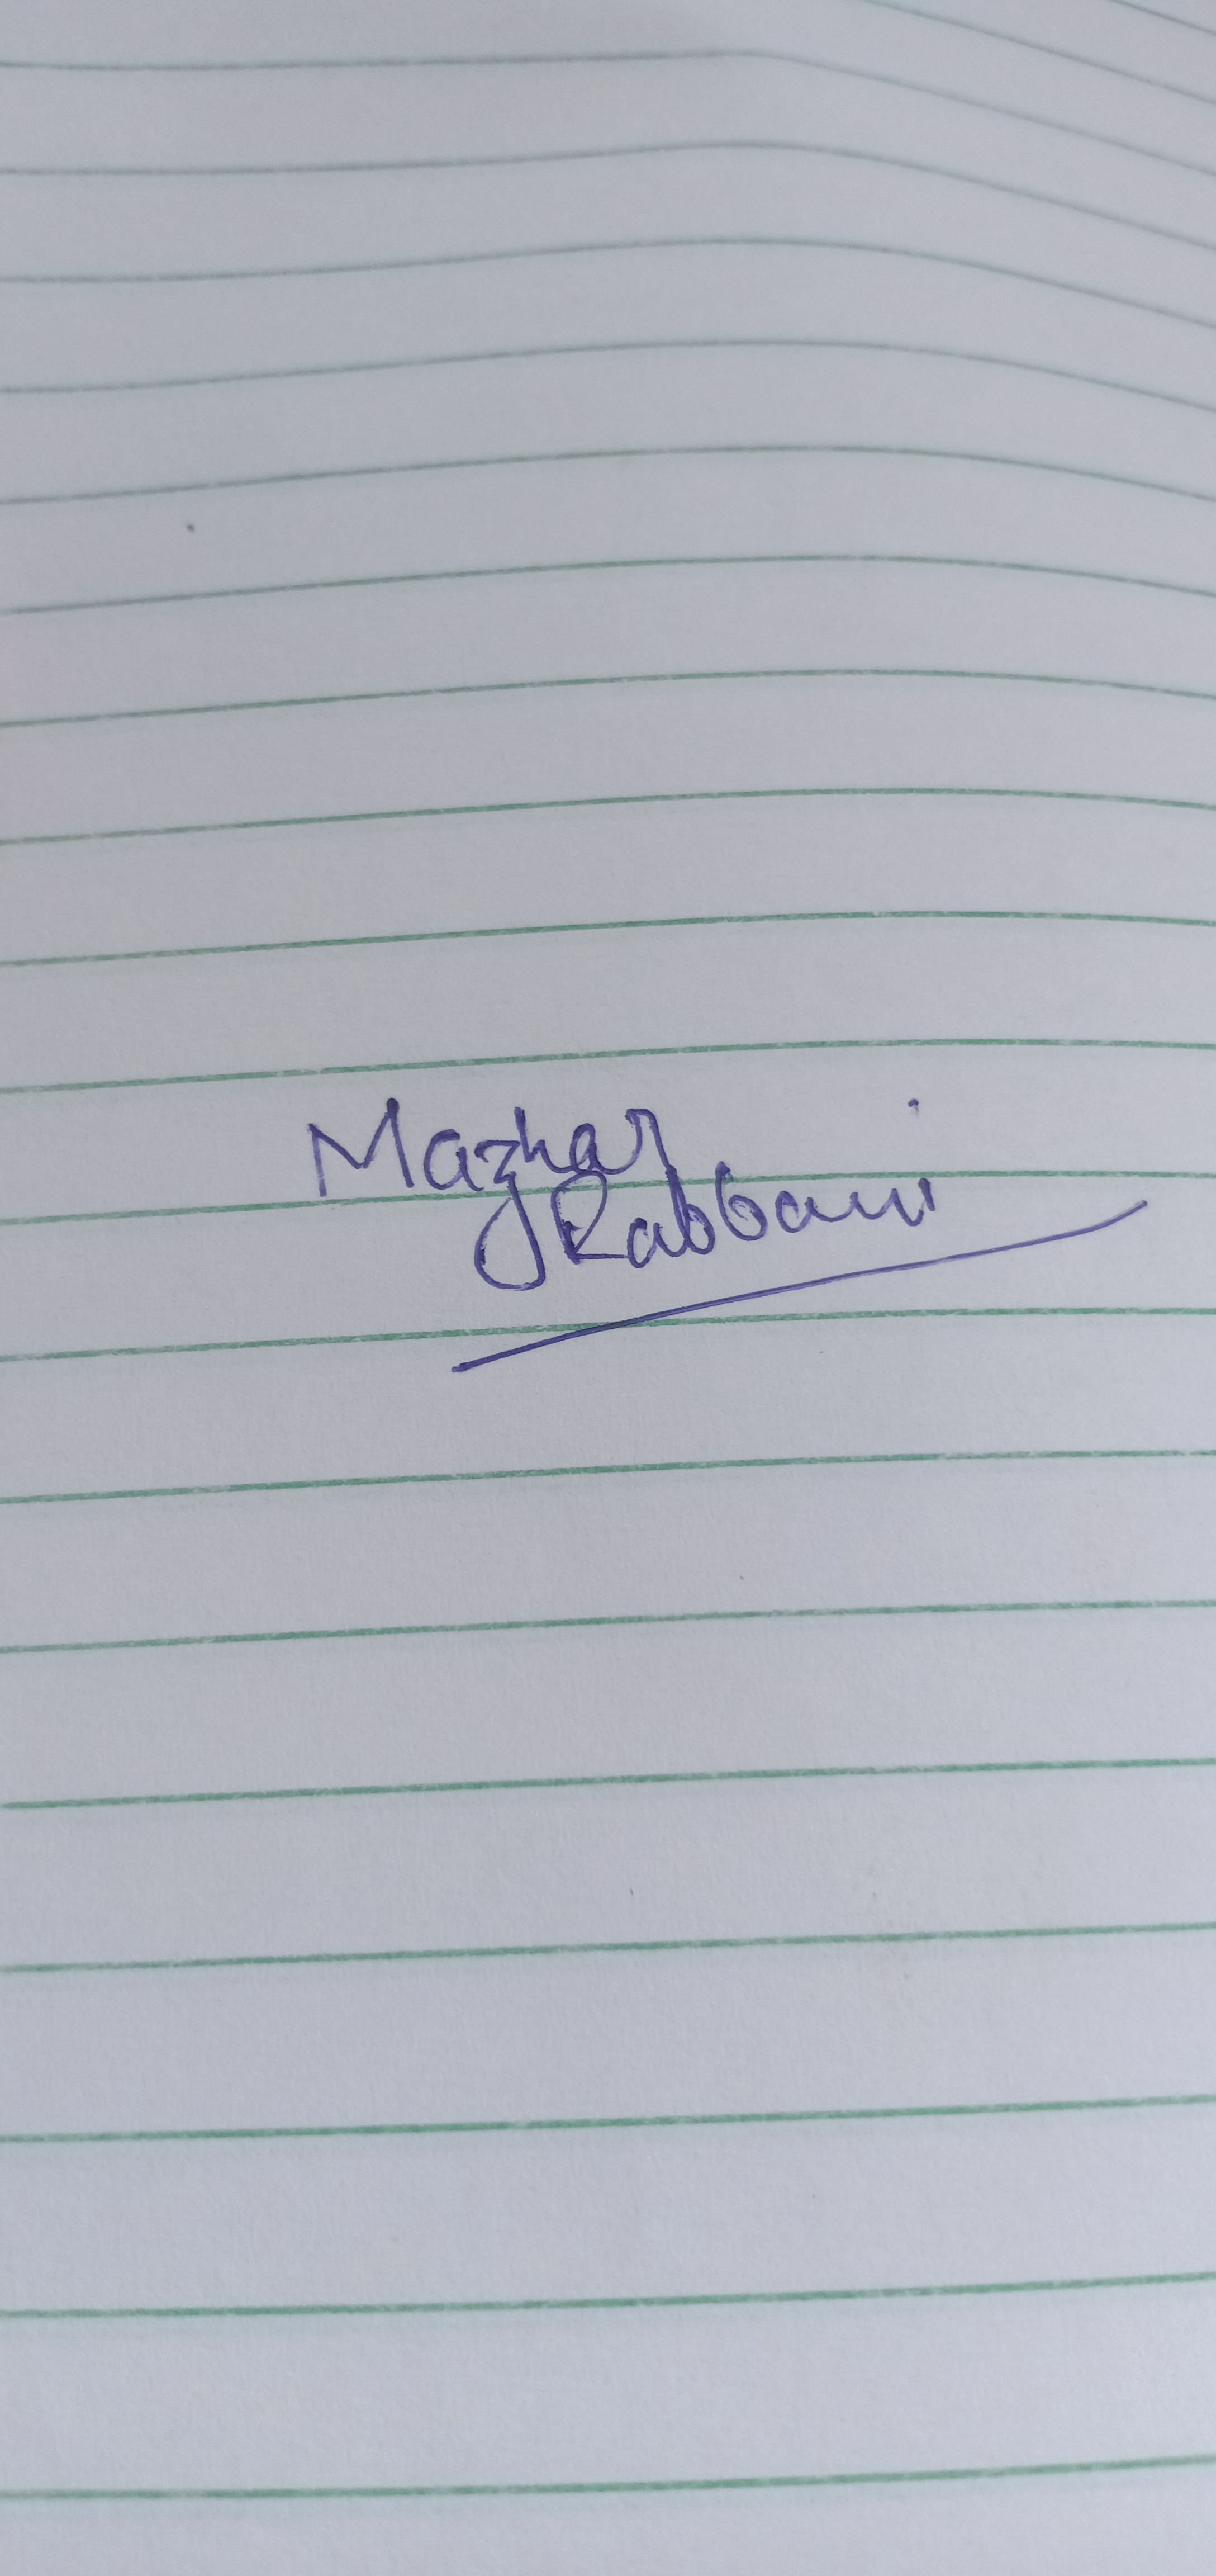 Mazhar
Rabbani